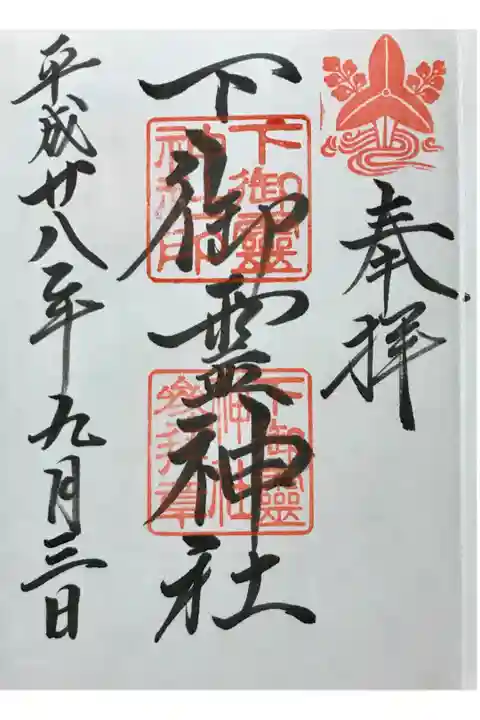 奉拝
下御霊神社
下御靈
神社印
下御靈
神社
参拝章
平成廿八年九月三日